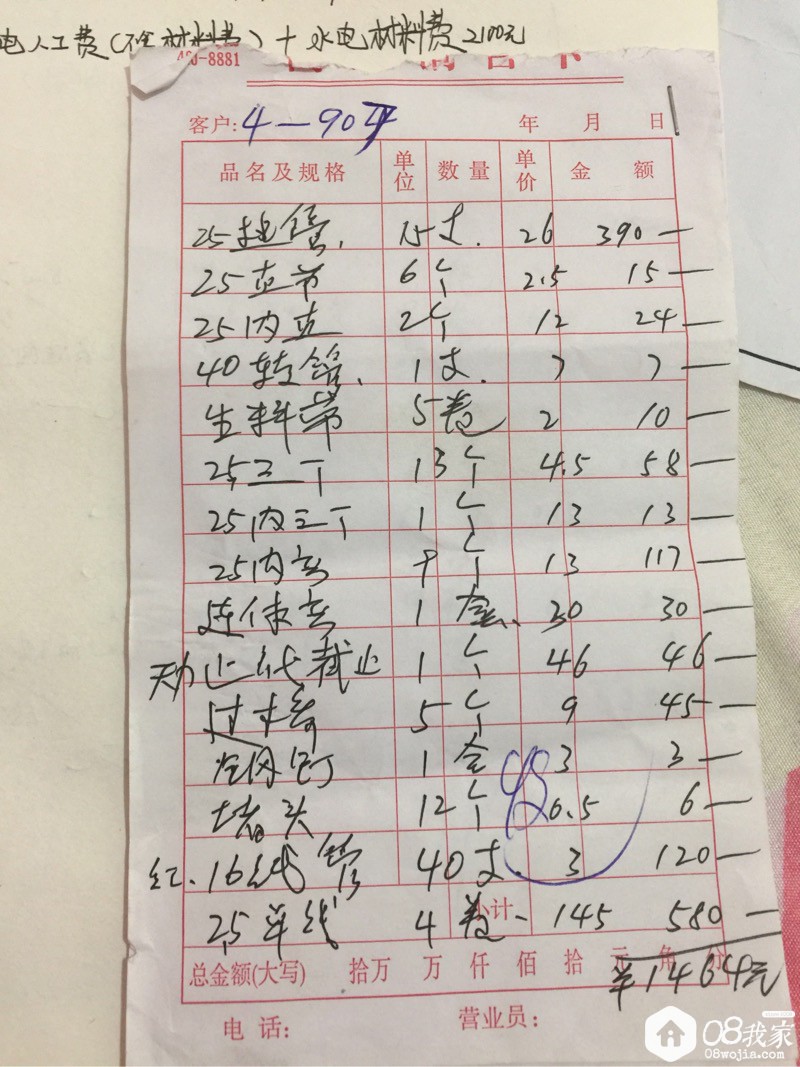 电人工费(不含材料费)+水电材料费2100元
400-8881
客户:4-904 年 月 日
品名及规格 单位 数量 单价 金 额
25挂管 15支 26 390—
25直节 6个 2.5 15—
25内直 2个 12 24—
40转管 1支 7 7—
生料带 5卷 2 10—
25三丁 13个 4.5 58—
25内三丁 1个 13 13—
25内弯 9个 13 117—
连体弯 1套 30 30—
截止 1个 46 46—
过桥 5个 9 45—
1合 3 3—
堵头 12个 0.5 6—
红16线管 40支 3 120—
2.5单线 4卷 小计 145 580—
总金额(大写) 拾万 万 仟 佰 拾 元 角 分 ¥1464元
电话: 营业员:
08我家
08wojia.com